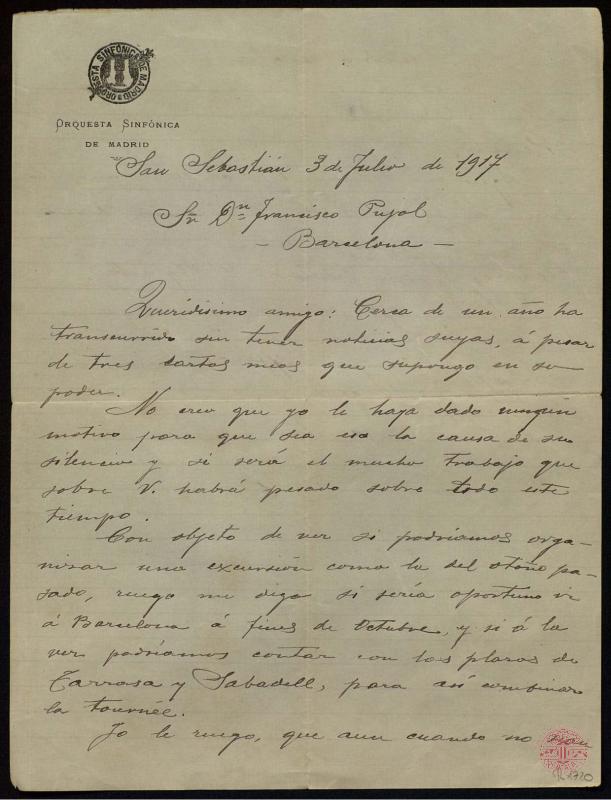 ORQUESTA SINFÓNICA DE MADRID
ORQUESTA SINFÓNICA
DE MADRID
San Sebastián 3 de Julio de 1917
Sr Dn Francisco Pujol
- Barcelona -
Queridisimo amigo: Cerca de un año ha
transcurrido sin tener noticias suyas, á pesar
de tres cartas mias que supongo en su
poder.
No creo que yo le haya dado ningún
motivo para que sea esa la causa de su
silencio y si será el mucho trabajo que
sobre V. habrá pesado sobre todo este
tiempo.
Con objeto de ver si podríamos orga-
nizar una excursión como la del otoño pa-
sado, ruego me diga si sería oportuno ir
á Barcelona á fines de Octubre, y si á la
vez podríamos contar con las plazas de
Tarrasa y Sabadell, para así combinar
la tournée.
Yo le ruego, que aun cuando no